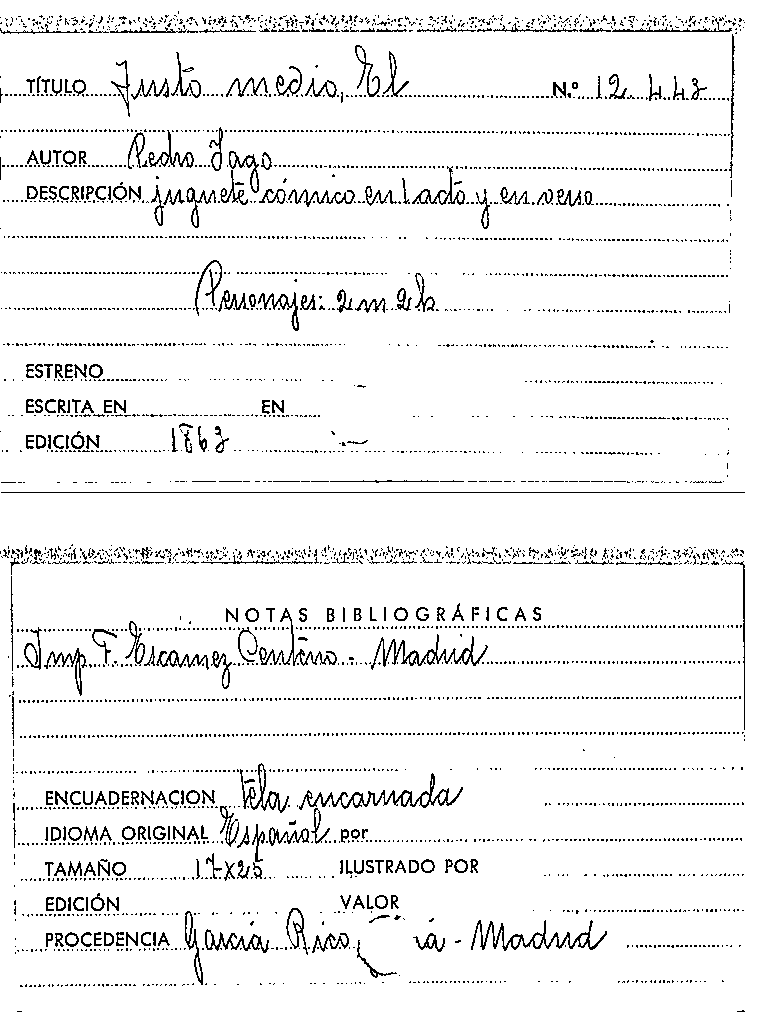 TÍTULO Justo medio, El N.º 12.443
AUTOR Pedro Jago
DESCRIPCIÓN juguete cómico en 1 acto y en verso
Personajes: 2 m 2 h
ESTRENO
ESCRITA EN EN
EDICIÓN 1863
NOTAS BIBLIOGRÁFICAS
Imp F. Escamez Centeno - Madrid
ENCUADERNACION tela encarnada
IDIOMA ORIGINAL Español por
TAMAÑO 17x25 ILUSTRADO POR
EDICIÓN VALOR
PROCEDENCIA García Rico, - Madrid